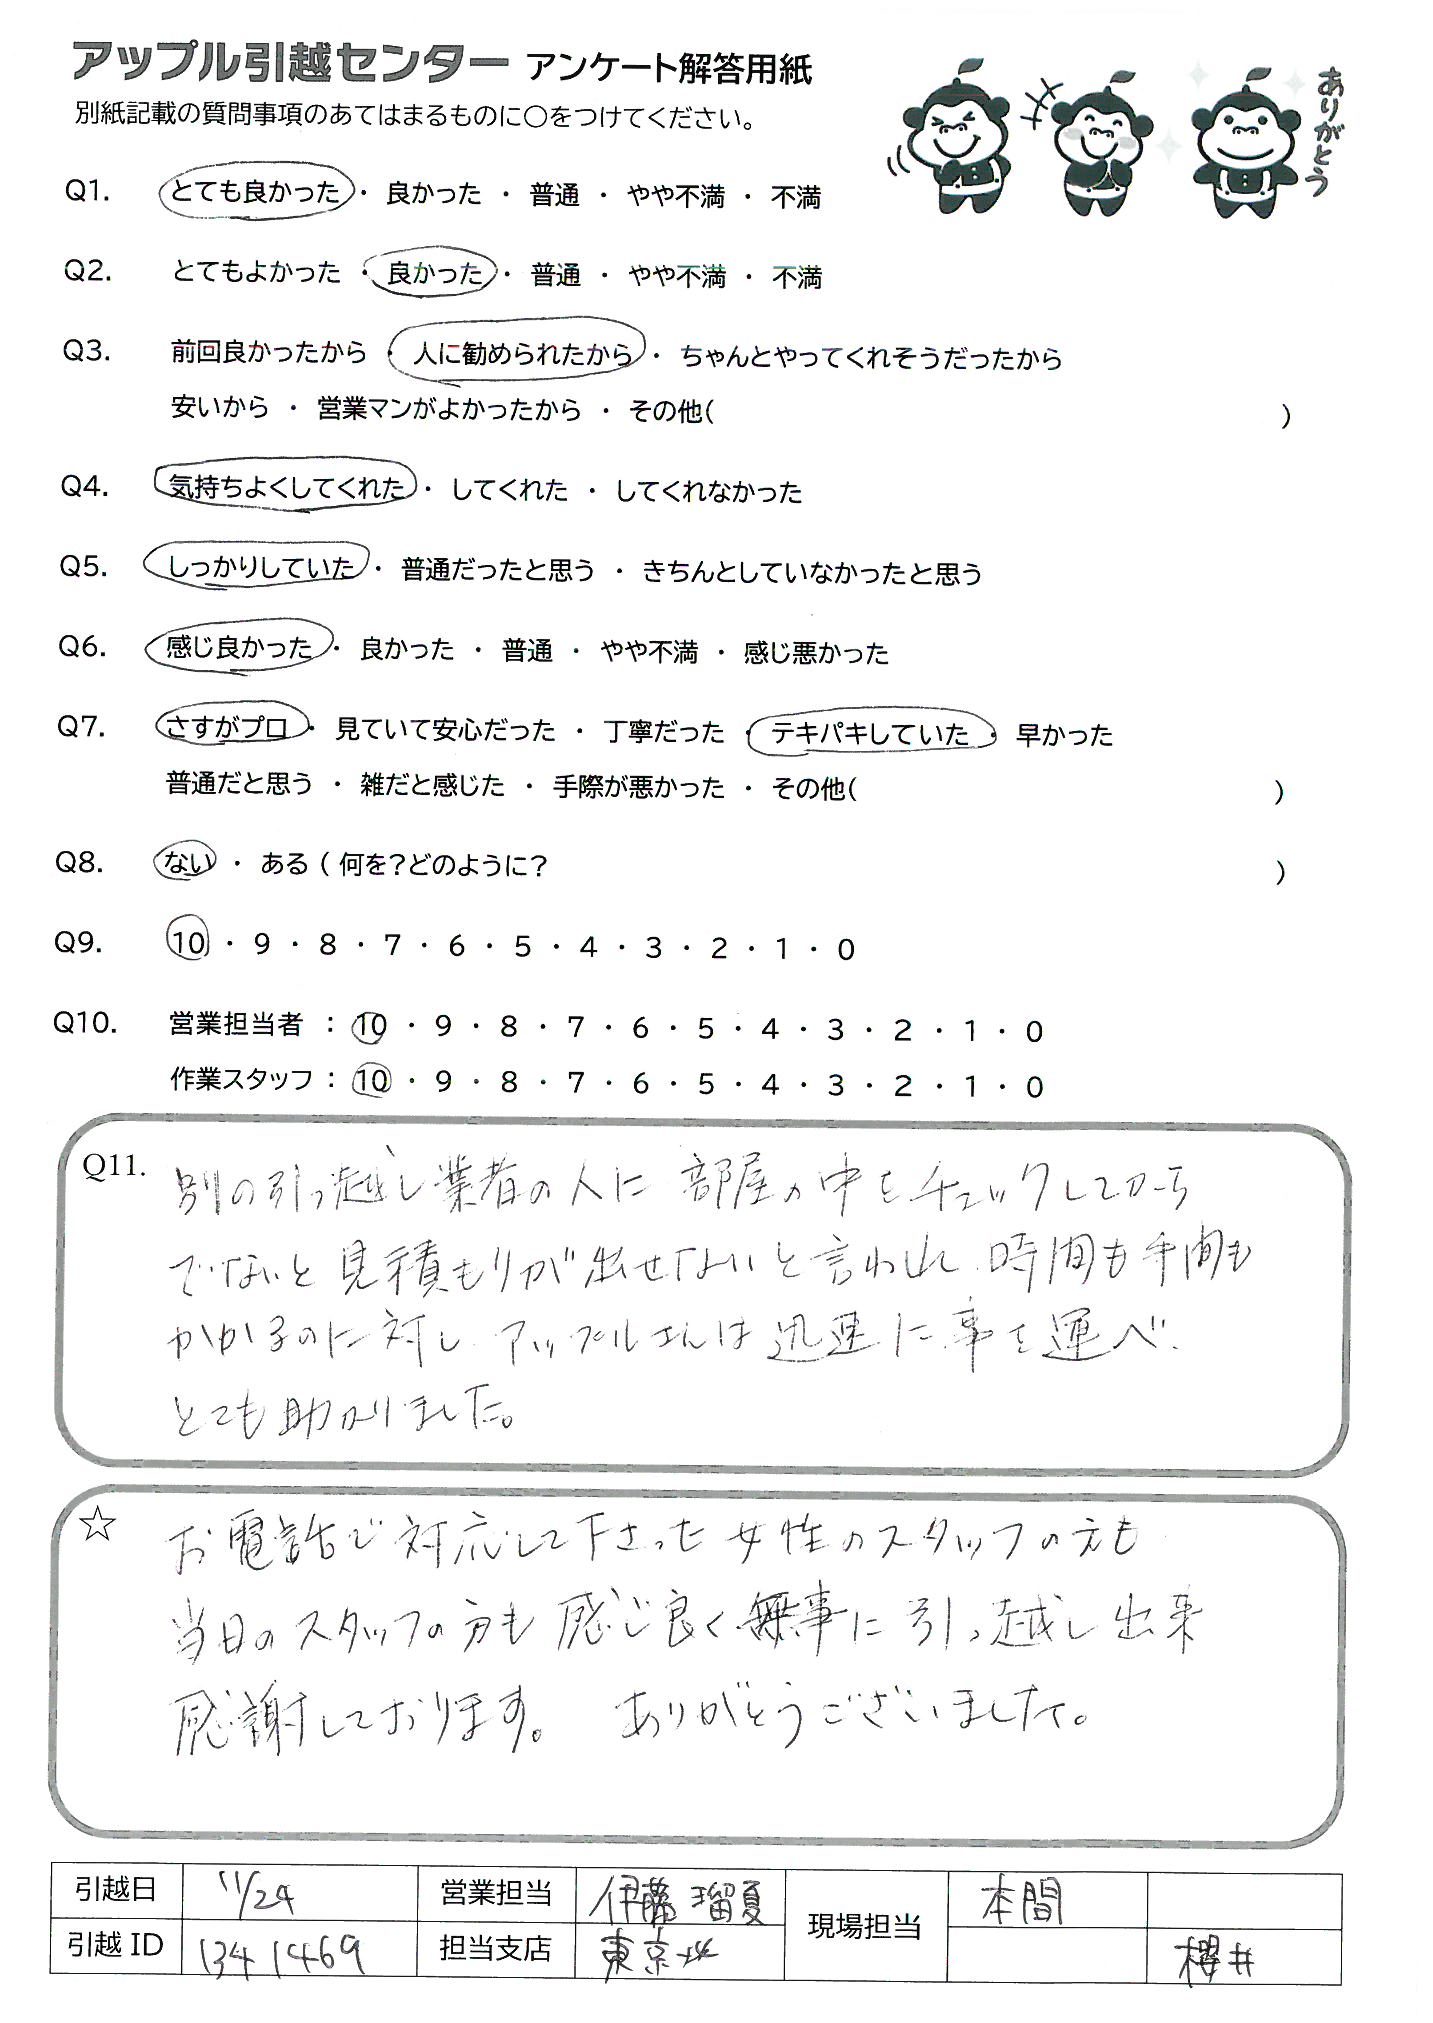 アップル引越センター アンケート解答用紙
別紙記載の質問事項のあてはまるものに○をつけてください。
ありがとう
Q1. とても良かった ・ 良かった ・ 普通 ・ やや不満 ・ 不満
Q2. とてもよかった ・ 良かった ・ 普通 ・ やや不満 ・ 不満
Q3. 前回良かったから ・ 人に勧められたから ・ ちゃんとやってくれそうだったから
安いから ・ 営業マンがよかったから ・ その他( )
Q4. 気持ちよくしてくれた ・ してくれた ・ してくれなかった
Q5. しっかりしていた ・ 普通だったと思う ・ きちんとしていなかったと思う
Q6. 感じ良かった ・ 良かった ・ 普通 ・ やや不満 ・ 感じ悪かった
Q7. さすがプロ ・ 見ていて安心だった ・ 丁寧だった ・ テキパキしていた ・ 早かった
普通だと思う ・ 雑だと感じた ・ 手際が悪かった ・ その他( )
Q8. ない ・ ある ( 何を?どのように? )
Q9. 10 ・ 9 ・ 8 ・ 7 ・ 6 ・ 5 ・ 4 ・ 3 ・ 2 ・ 1 ・ 0
Q10. 営業担当者 : 10 ・ 9 ・ 8 ・ 7 ・ 6 ・ 5 ・ 4 ・ 3 ・ 2 ・ 1 ・ 0
作業スタッフ : 10 ・ 9 ・ 8 ・ 7 ・ 6 ・ 5 ・ 4 ・ 3 ・ 2 ・ 1 ・ 0
Q11. 別の引っ越し業者の人に部屋の中をチェックしてから
でないと見積もりが出せないと言われ、時間も手間も
かかるのに対し、アップルさんは迅速に事を運べ、
とても助かりました。
☆ お電話で対応して下さった女性のスタッフの方も
当日のスタッフの方も感じ良く無事に引っ越し出来
感謝しております。 ありがとうございました。
引越日 11/24 営業担当 伊藤 瑠夏 現場担当 本間
引越 ID 1341469 担当支店 東京北 櫻井